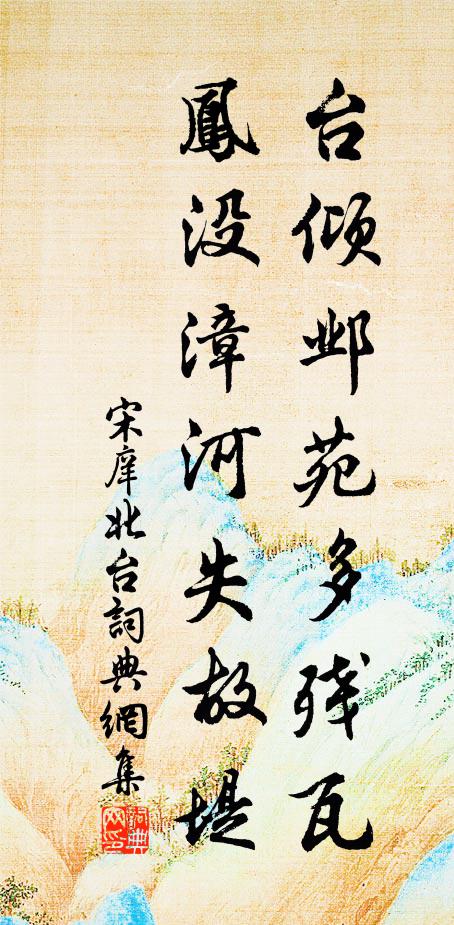 台倾邺苑多残瓦
鳳没漳河失故堤
宋庠北台詞典網集
詞典網印